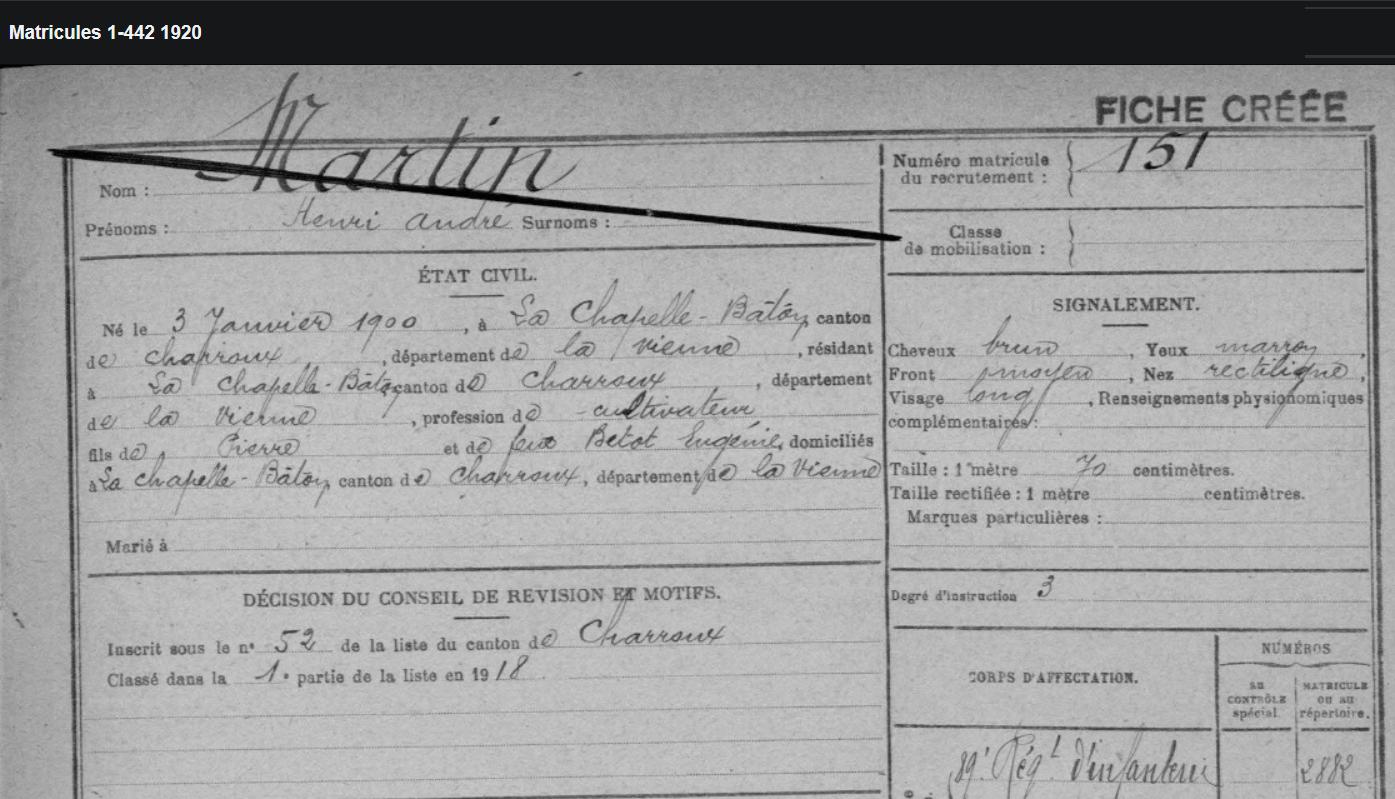 Matricules 1-442 1920
FICHE CRÉÉE
Nom : Martin
Prénoms : Henri André Surnoms :
Numéro matricule
du recrutement : 151
Classe
de mobilisation :
ÉTAT CIVIL.
Né le 3 Janvier 1900, à La Chapelle-Bâton, canton
de Charroux, département de la Vienne, résidant
à La Chapelle-Bâton canton de Charroux, département
de la Vienne, profession de cultivateur
fils de Pierre et de feue Betot Eugénie, domiciliés
à La Chapelle-Bâton, canton de Charroux, département de la Vienne
Marié à
SIGNALEMENT.
Cheveux brun, Yeux marron,
Front moyen, Nez rectiligne,
Visage long, Renseignements physionomiques
complémentaires :
Taille : 1 mètre 70 centimètres.
Taille rectifiée : 1 mètre centimètres.
Marques particulières :
Degré d'instruction 3
DÉCISION DU CONSEIL DE REVISION ET MOTIFS.
Inscrit sous le n° 52 de la liste du canton de Charroux
Classé dans la 1e partie de la liste en 1918
CORPS D'AFFECTATION.
NUMÉROS
AU
CONTRÔLE
spécial.
MATRICULE
ou au
répertoire.
89e Régt d'infanterie 2882